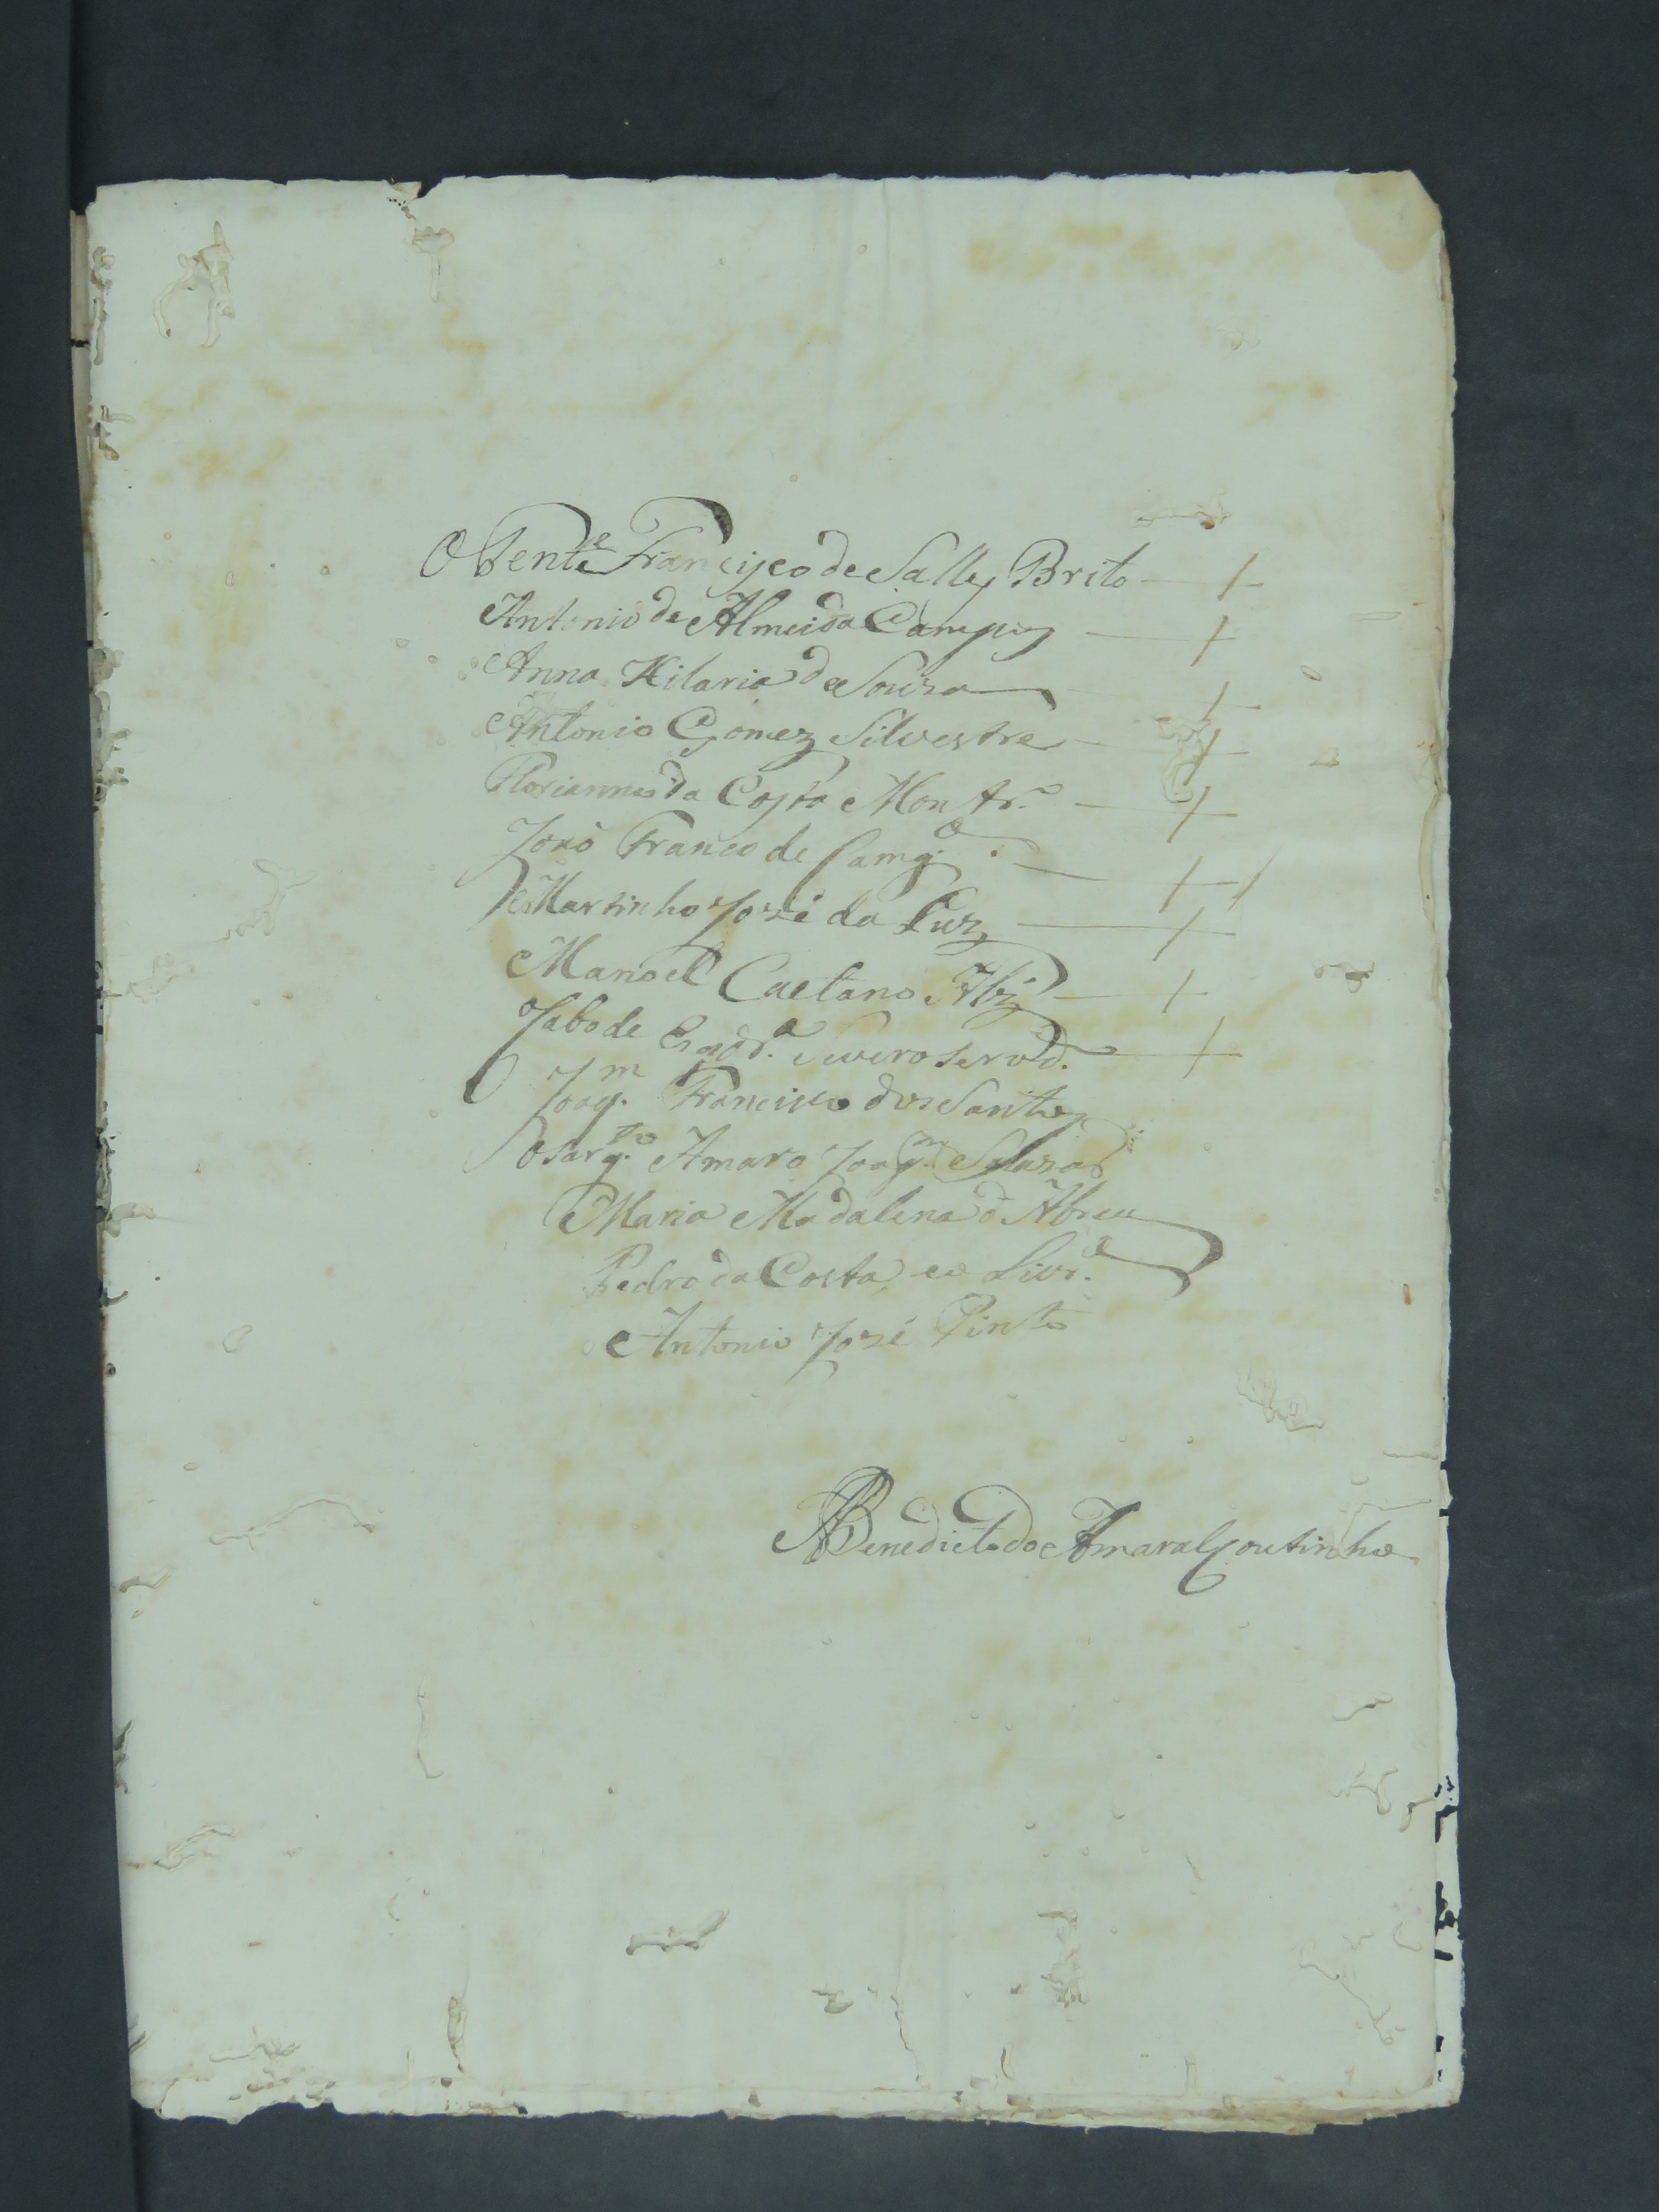 O Tente Francisco de Salles Brito
Antonio de Almeida Campos
Anna Hilaria de Souza
Antonio Gomez Silvestre
Florianno da Costa Montr.º
João Franco de Camg.º
Martinho José da Luz
Manoel Caetano
Cabo de Esqd.ª Severo
Joaq.m Francisco dos Santos
O Sarg.to Amaro Joaq.m
Maria Madalena d' Abreu
Pedro da Costa
Antonio José Pinto
Benedicto do Amaral Coutinho